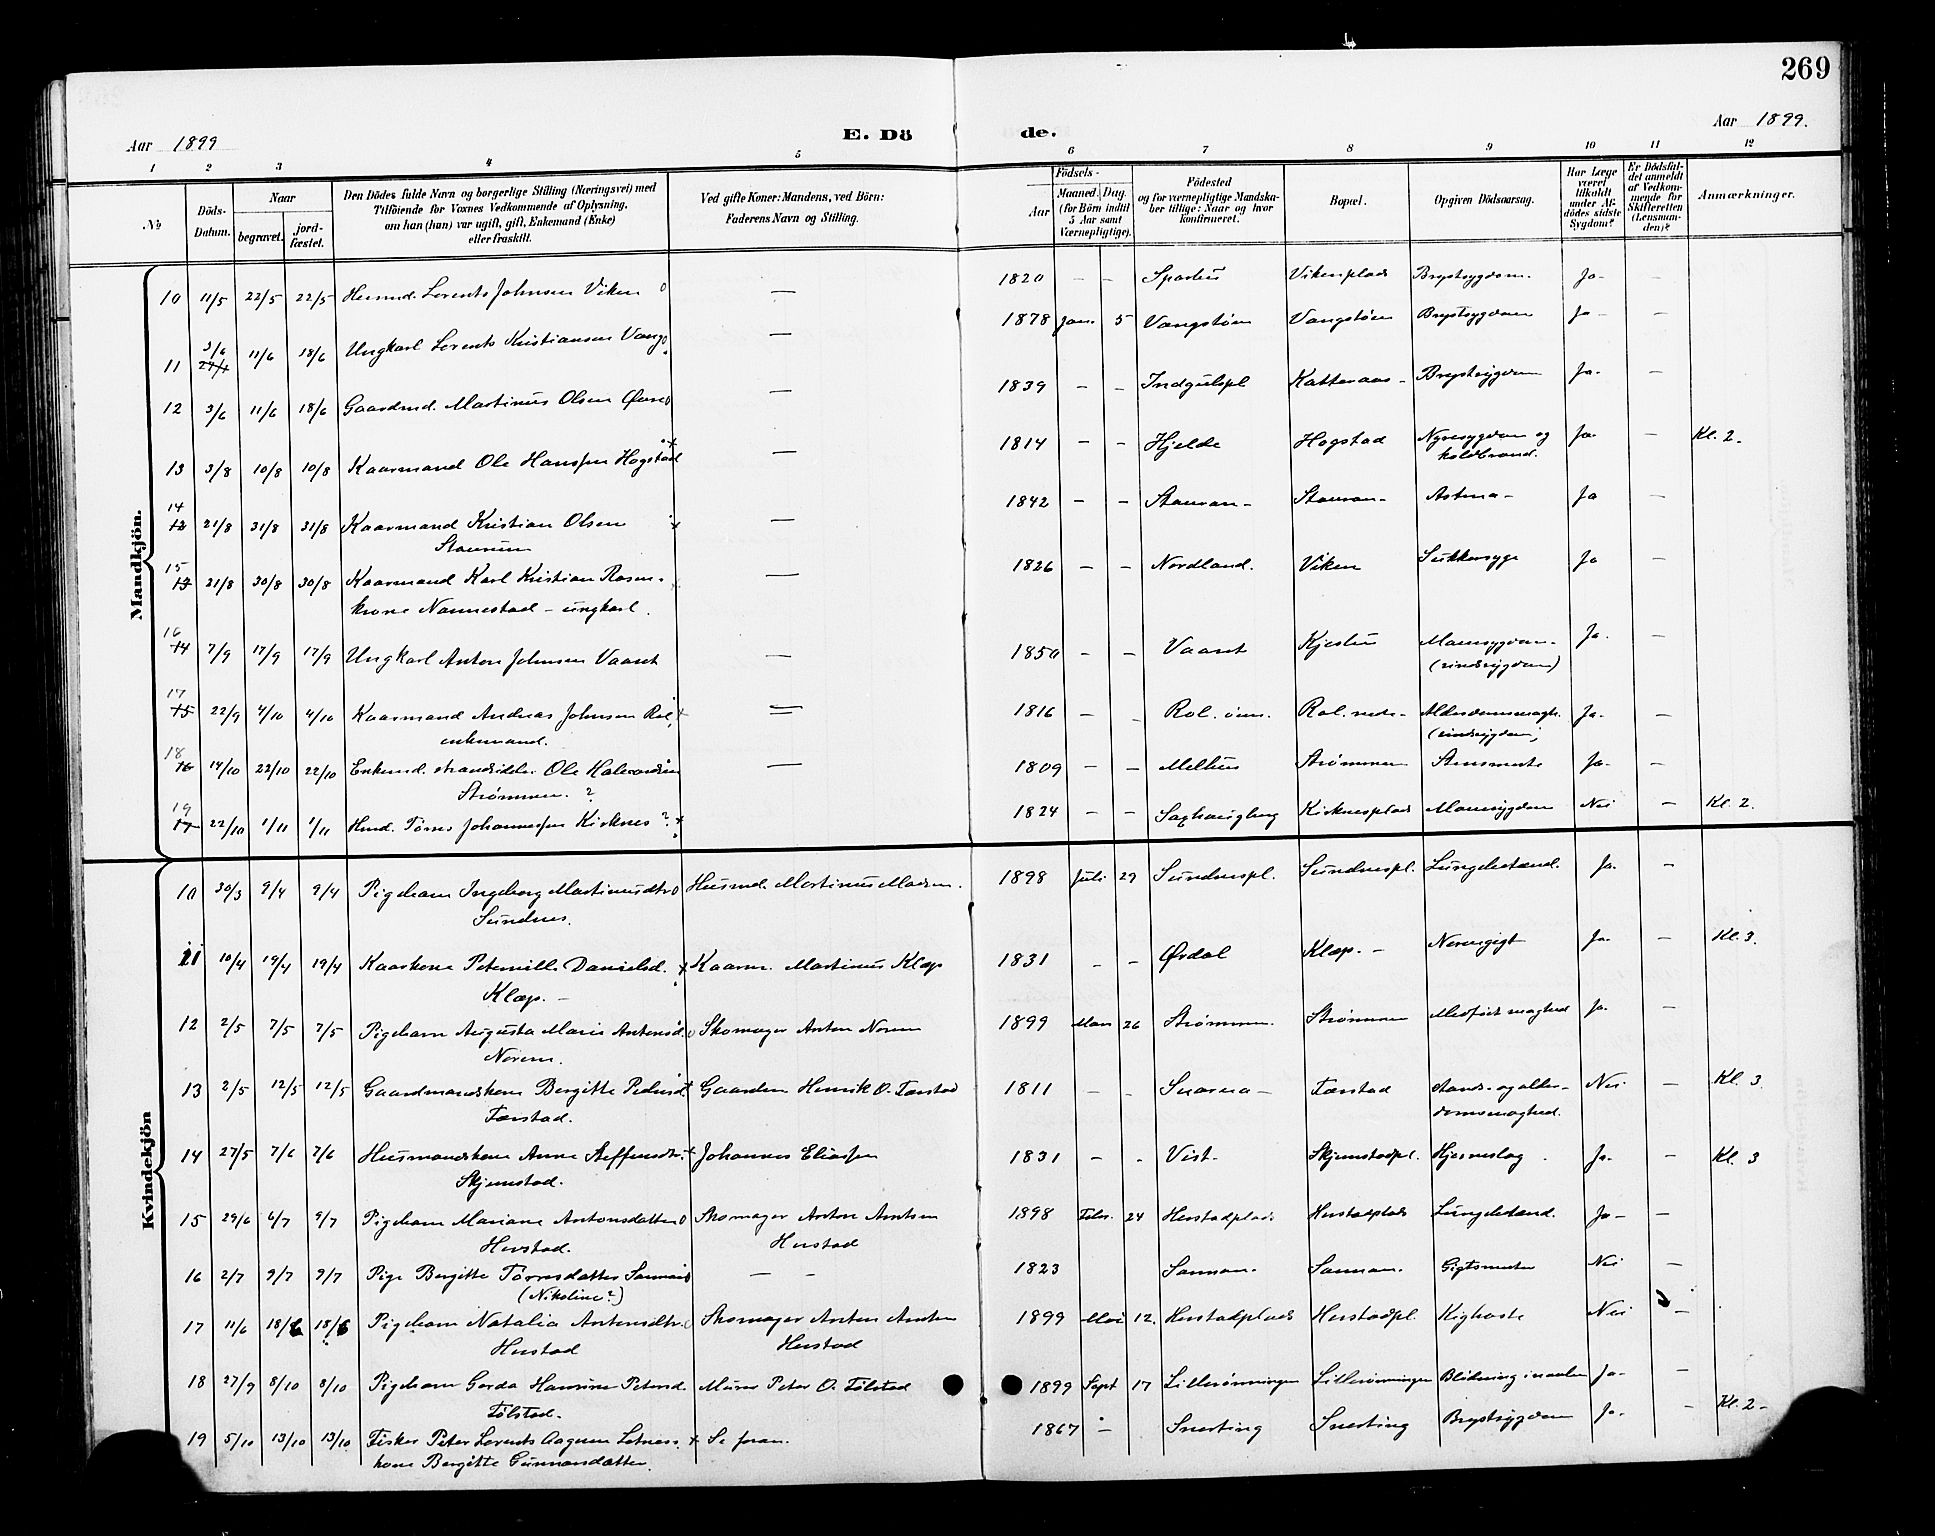 269
Aar 1899
E. Dö
de.
Aar 1899.
1 2 3 4 5 6 7 8 9 10 11 12
№
Döds-Datum.
Naar
begravet.
jord-fæstet.
Den Dödes fulde Navn og borgerlige Stilling (Næringsvei) med
Tilföiende for Voxnes Vedkommende af Oplysning,
om han (hun) var ugift, gift, Enkemand (Enke)
eller fraskilt.
Ved gifte Koner: Mandens, ved Börn:
Faderens Navn og Stilling.
Födsels-
Aar
Maaned. Dag.
(for Börn indtil
5 Aar samt
Værnepligtige).
Födested
og for værnepligtige Mandska-
ber tillige: Naar og hvor
konfirmeret.
Bopæl.
Opgiven Dödsaarsag.
Har Læge
været
tilkaldt
under Af-
dödes sidste
Sygdom?
Er Dödsfal-
det anmeldt
af Vedkom-
mende for
Skifteretten
(Lensman-
den)?
Anmærkninger.
Mandkjön.
10 11/5 22/5 22/5 Husmd. Lorents Johnsen Viken — 1820 — — Sparbu Vikenplads Brystsygdom. Ja —
11 3/6 11/6 18/6 Ungkarl Lorents Kristiansen Vang — 1878 Jan. 5 Vangstøen Vangstøen Brystsygdom Ja —
12 3/6 11/6 18/6 Gaardmd. Martinus Olsen — 1839 — — Katteraas Brystsygdom Ja —
13 3/8 10/8 10/8 Kaarmand Ole Hanssen Hogstad — 1814 — — Hjelde Hogstad Nyresygdom og Ja — Kl. 2.
koldbrand.
14 12 21/8 31/8 31/8 Kaarmand Kristian Olsen — 1842 — — Astma — Ja —
15 13 21/8 30/8 30/8 Kaarmand Karl Kristian Rosen- — 1826 — — Nordland. Viken Sukkersyge Ja —
krone Nannestad — ungkarl.
16 14 7/9 17/9 17/9 Ungkarl Anton Johnsen Vaant — 1850 — — Vaant Mavesygdom — Ja —
17 15 22/9 4/10 4/10 Kaarmand Andreas Johnsen Rol, — 1816 — — Rol. Rol. Ja —
enkemand.
18 16 14/10 22/10 22/10 Enkemd. strandsidder Ole Halvordsen — 1809 — — Melhus Strømmen Ja —
Strømmen. ?
19 17 22/10 1/11 1/11 Husmd. Tørris Johannessen Kirknes? 1824 — — Saxhaugberg Kirknesplads Mavesygdom Nei — Kl. 2.
Kvindekjön
10 30/3 9/4 9/4 Pigebarn Ingeborg Martinusdtr. Husmd. Martinus Madsen. 1898 Juli 29 Sundnespl. Sundnespl. Lungebetænd. Ja —
Sundnes.
11 10/4 19/4 19/4 Kaarkone Peternille Danielsd. Kaarm. Martinus Klæp 1831 — — Ørdal Klæp. — Nervegigt Ja — Kl. 3.
Klæp. —
12 2/5 7/5 7/5 Pigebarn Augusta Marie Antonsd. Skomager Anton Norem 1899 Mars 26 Strømmen. Strømmen Medfødt svaghed Ja. —
Norem.
13 2/5 12/5 12/5 Gaardmandskone Bergitte Pedersd. Gaardm. Henrik O. Tørstad 1811 — — Snaasa — Tørstad Nei — Kl. 3.
Tørstad. domssvaghed.
14 27/5 7/6 7/6 Husmandskone Anne Steffensdtr. Johannes Eliassen 1831 — — Vist. Skjemstadpl. Hjerneslag. Ja. — Kl. 3
Skjemstad.
15 29/6 6/7 9/7 Pigebarn Mariane Antonsdatter Skomager Anton Arntsen 1898 Febr. 24 Herstadplads Herstadplads Lungebetænd. Ja — —
Herstad. Herstad
16 2/7 9/7 9/7 Pige Bergitte Tørresdatter Sannan — — 1823 Sannan. Sannan. Gigtsmerter Nei —
(Nikoline?)
17 11/6 18/6 18/6 Pigebarn Natalia Antonsdtr. Skomager Anton Arntsen 1899 Mai 12. Herstadplads Herstadpl. Kighoste Nei —
Herstad Herstad
18 27/9 8/10 8/10 Pigebarn Gerda Hansine Petersd. Murer Peter O. Tølstad 1899 Sept 17 Lillerønningen Lillerønningen Blødning i navlen Ja. —
Tølstad.
19 5/10 13/10 13/10 Fisker Peter Lorents Aagesen Letness Se foran. 1867 — Snerting Snerting Brystsygdom Ja. — Kl. 2 —
kone Bergitte Gunnarsdatter.